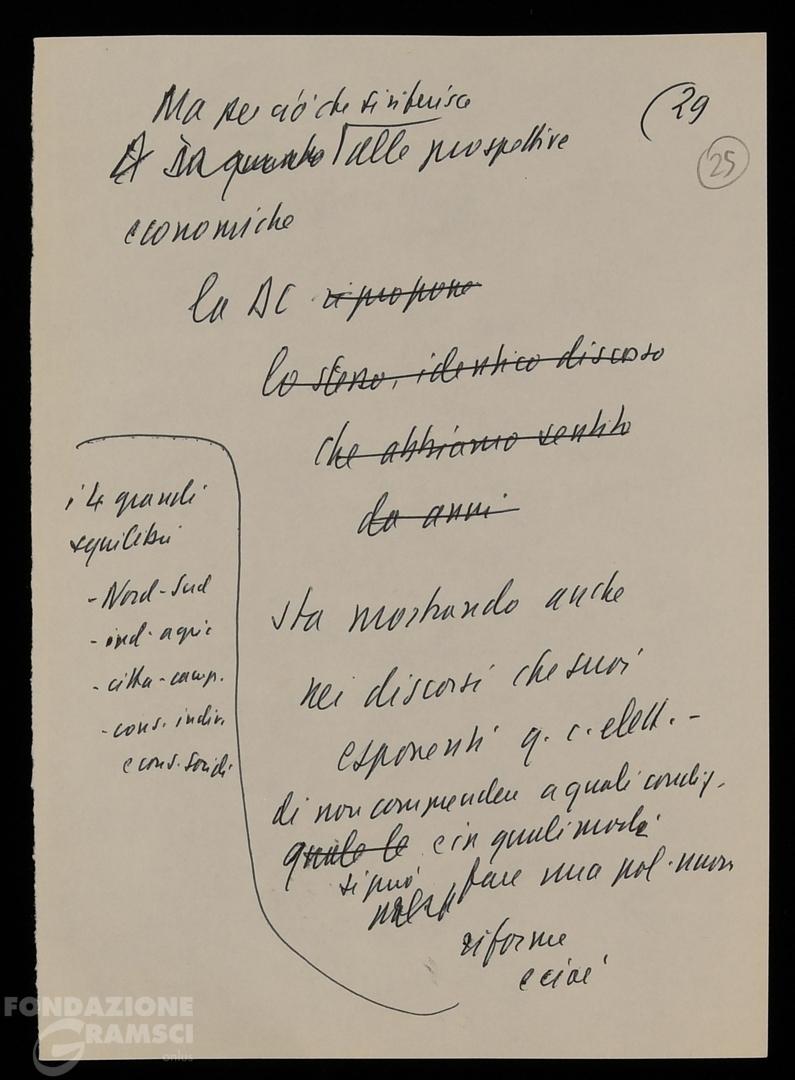 (29
25
Ma per ciò che si riferisce
In quanto alle prospettive
economiche
la DC ripropone
lo stesso, identico discorso
che abbiamo sentito
da anni
sta mostrando anche
nei discorsi che suoi
esponenti q. c. elett. -
di non comprendere a quali condiz.
quale le e in quali modi
si può
fare una pol. nuova
riforme
e cioè
i 4 grandi
squilibri
- Nord-Sud
- ind. agric
- città-camp.
- cons. indiv.
e cons. sociali
FONDAZIONE
GRAMSCI
onlus